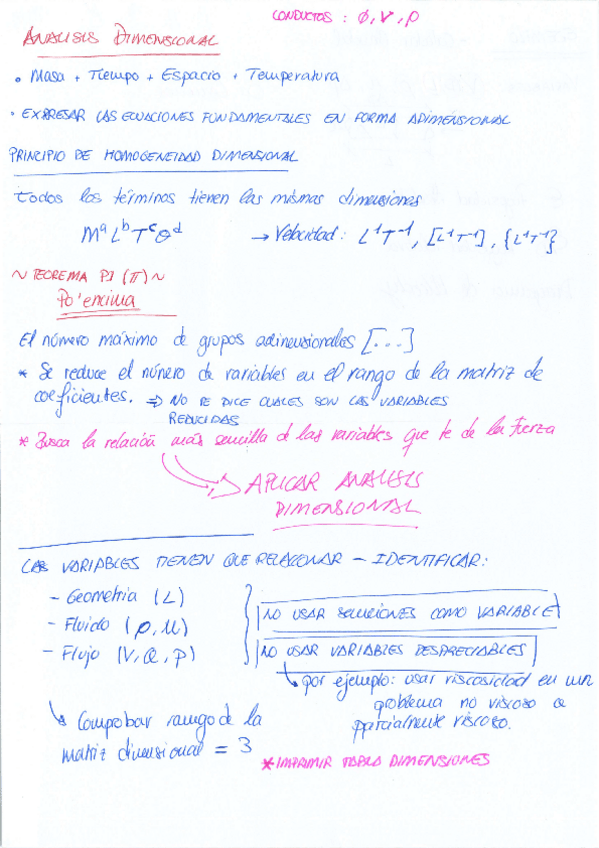 CONDUCTOS : Ø, V, ρ
ANALISIS DIMENSIONAL
• Masa + Tiempo + Espacio + Temperatura
• EXPRESAR LAS ECUACIONES FUNDAMENTALES EN FORMA ADIMENSIONAL
PRINCIPIO DE HOMOGENEIDAD DIMENSIONAL
todos los términos tienen las mismas dimensiones
MᵃLᵇTᶜΘᵈ → Velocidad: L¹T⁻¹, [L¹T⁻¹], {L¹T⁻¹}
~ TEOREMA PI (π) ~
Po'encima
El número máximo de grupos adimensionales [...]
* Se reduce el número de variables en el rango de la matriz de
coeficientes. ⇒ NO TE DICE CUALES SON LAS VARIABLES
REDUCIDAS
* Busca la relación más sencilla de las variables que te de la fuerza
APLICAR ANALISIS
DIMENSIONAL
LAS VARIABLES TIENEN QUE RELACIONAR – IDENTIFICAR:
- Geometria (L)
- Fluido (ρ, μ)
- Flujo (V, Q, P)
NO USAR SOLUCIONES COMO VARIABLE
NO USAR VARIABLES DESPRECIABLES
↳ por ejemplo: usar viscosidad en un
problema no viscoso o
parcialmente viscoso.
↳ Comprobar rango de la
matriz dimensional = 3
* IMPRIMIR TABLA DIMENSIONES